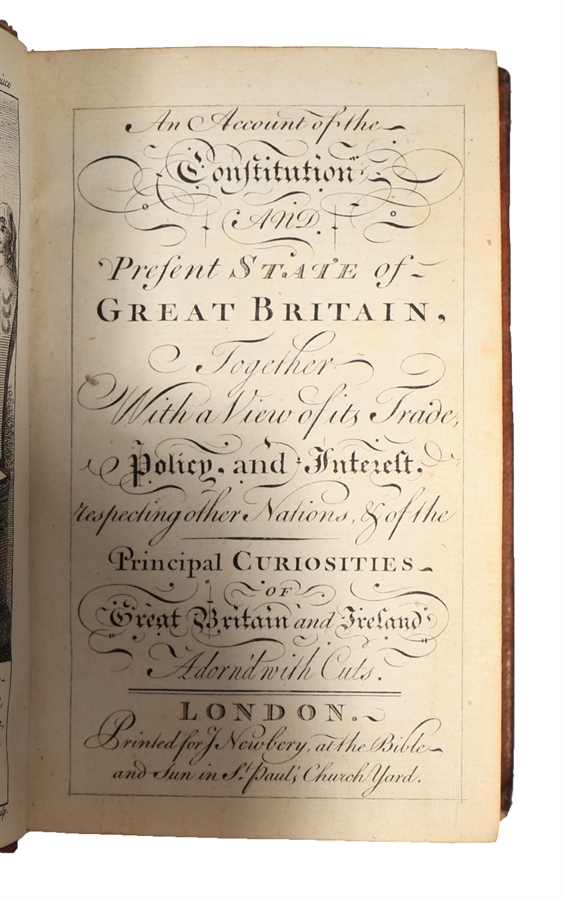 An Account of the
Conſtitution
AND
Preſent STATE of
GREAT BRITAIN,
Together
With a View of its Trade,
Policy, and Intereſt,
respecting other Nations, & of the
Principal CURIOSITIES
OF
Great Britain and Ireland
Adorn'd with Cuts.
LONDON.
Printed for J Newbery, at the Bible
and Sun in St. Paul's Church Yard.